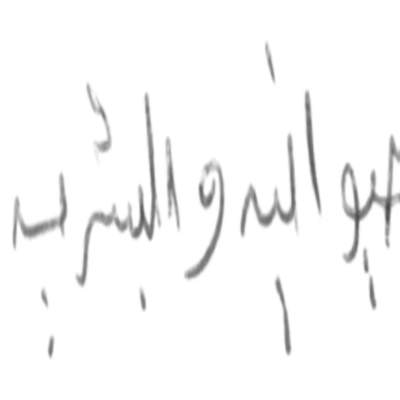 حيوانيه والبشريه